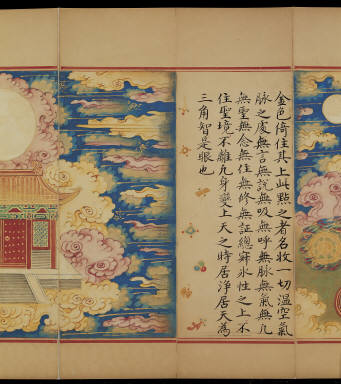 金色倚住其上此點之者名收一切溫空氣
脉之處無言無說無吸無呼無脉無氣無凡
無聖無念無住無修無証總性之上不
住聖境不離凡身變上天之時居淨居天為
三角智是眼也